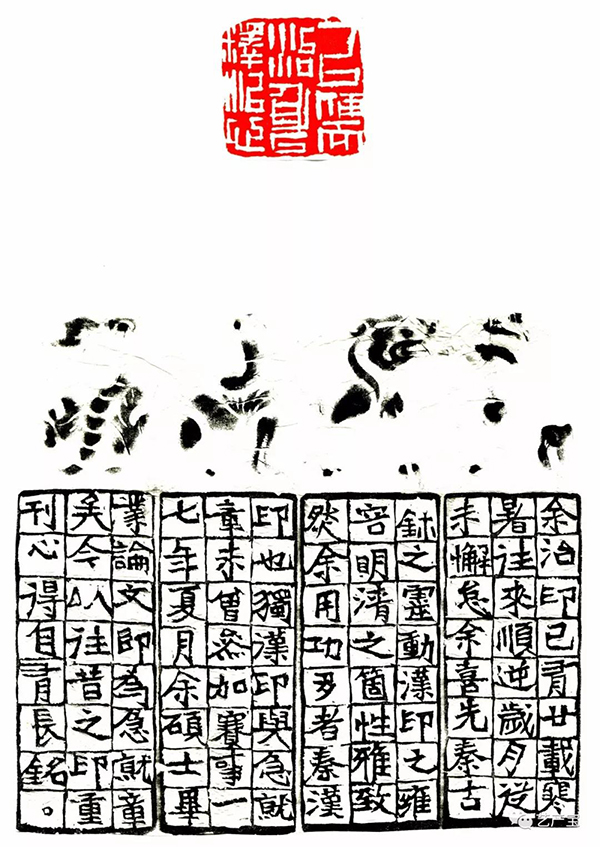 余治印已有廿載寒
暑往來順逆歲月從
未懈怠余喜先秦古
鉨之靈動漢印之雍
容明清之箇性雅致
然余用功多者秦漢
印也獨漢印與急就
章未曾參加賽事一
七年夏月余碩士畢
業論文即為急就章
矣今以往昔之印重
刊心得自有長銘。
艺产宝